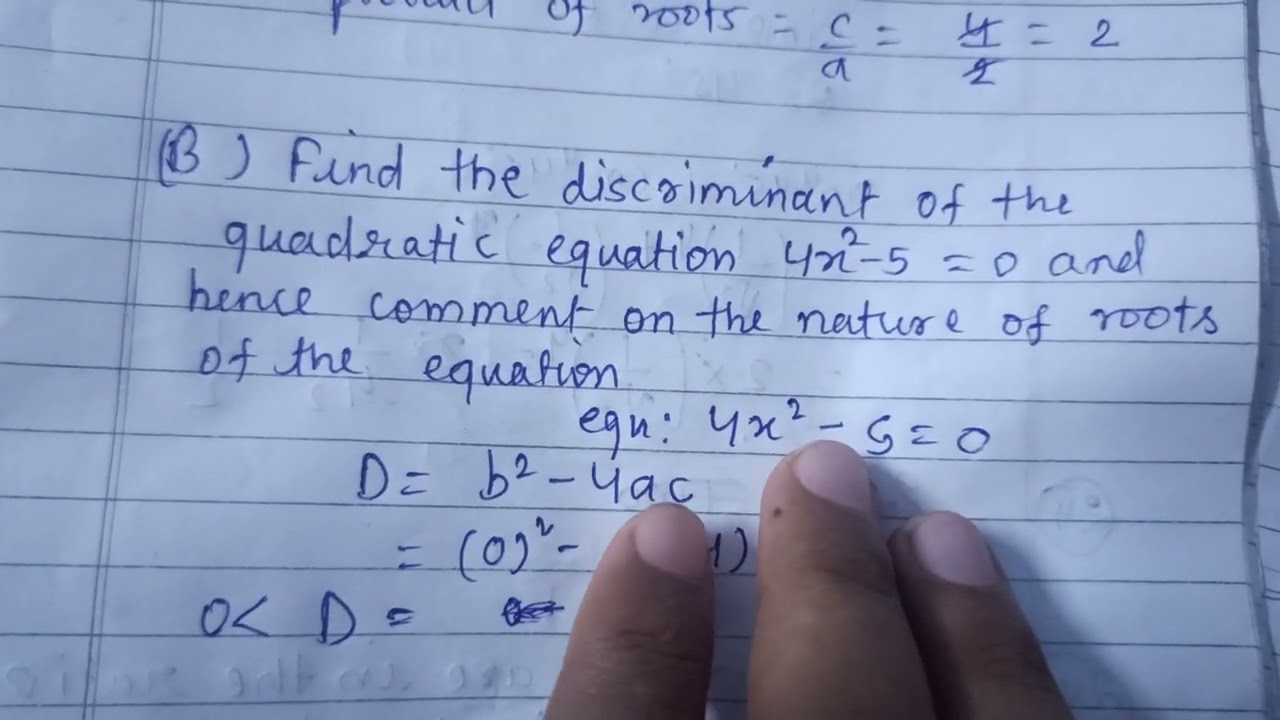 of roots = c/a = 4/2 = 2
(B) Find the discriminant of the
quadratic equation 4x²-5 = 0 and
hence comment on the nature of roots
of the equation
eqn: 4x² - 5 = 0
D = b² - 4ac
= (0)² -
0< D =